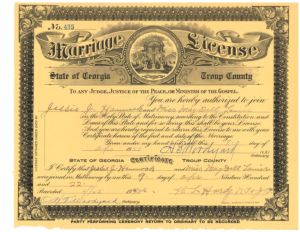 No. 435
Marriage License
State of Georgia Troup County
To any Judge, Justice of the Peace, or Minister of the Gospel.
You are hereby authorized to join
Jessie J. Hammock and Miss May Bell
in the Holy State of Matrimony according to the Constitution and
Laws of this State and for so doing this shall be your License.
And you are hereby required to return this License to me with your
Certificate hereon of the fact and date of the Marriage.
Given under my hand and seal this
STATE OF GEORGIA Certificate TROUP COUNTY
I Certify that Jessie J. Hammock and Miss May Bell
were joined in Matrimony by me this 9 day of
Hundred and 22
Recorded
PARTY PERFORMING CEREMONY RETURN TO ORDINARY TO BE RECORDED